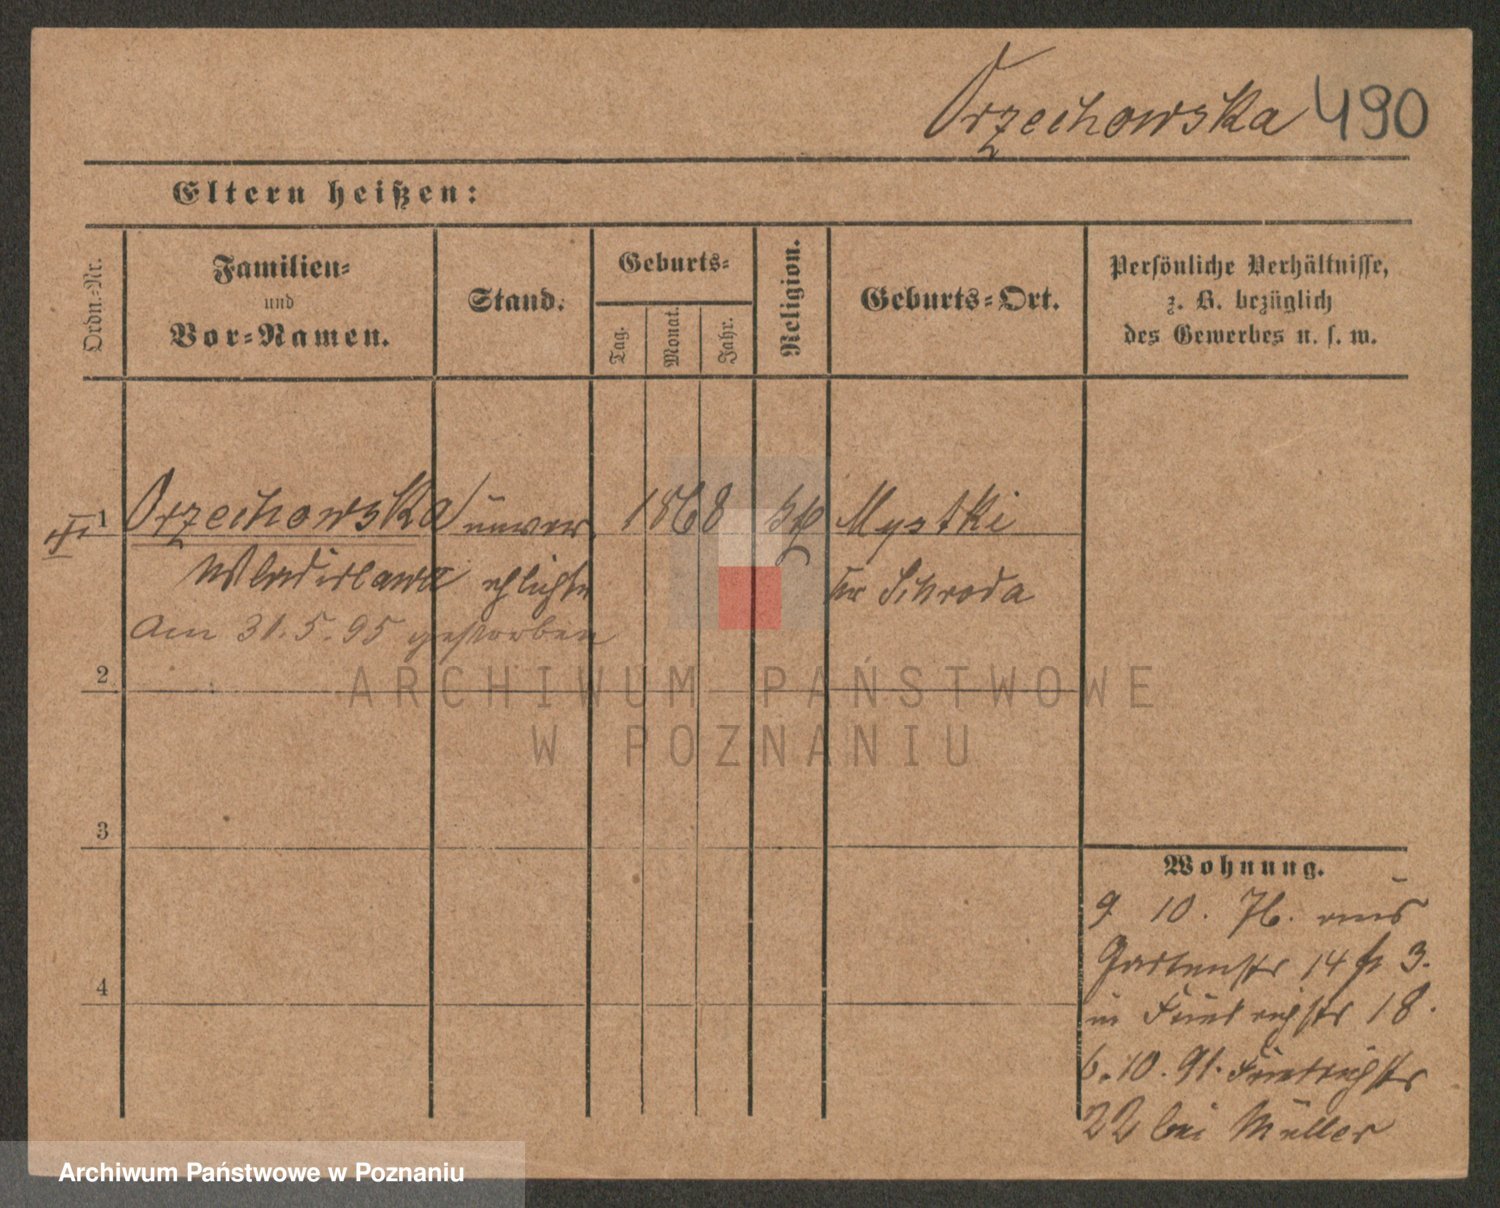 Orzechowska 490
Eltern heißen:
Ordn.-Nr.
Familien-
und
Vor-Namen.
Stand.
Geburts-
Tag.
Monat.
Jahr.
Religion.
Geburts-Ort.
Persönliche Verhältnisse,
z. B. bezüglich
des Gewerbes u. s. w.
1 Orzechowska unver 1868 Mystki
Wladislawa ehlicht Kr Schroda
Am 31.5.95 gestorben
2
ARCHIWUM PAŃSTWOWE
W POZNANIU
3
4
Wohnung.
9 10. 76. aus
Gartenstr 14 3.
in Friedrichstr 18.
6.10.91. Friedrichstr
22 bei Müller
Archiwum Państwowe w Poznaniu